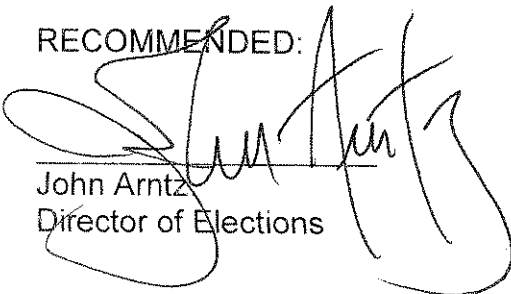 RECOMMENDED:
John Arntz
Director of Elections